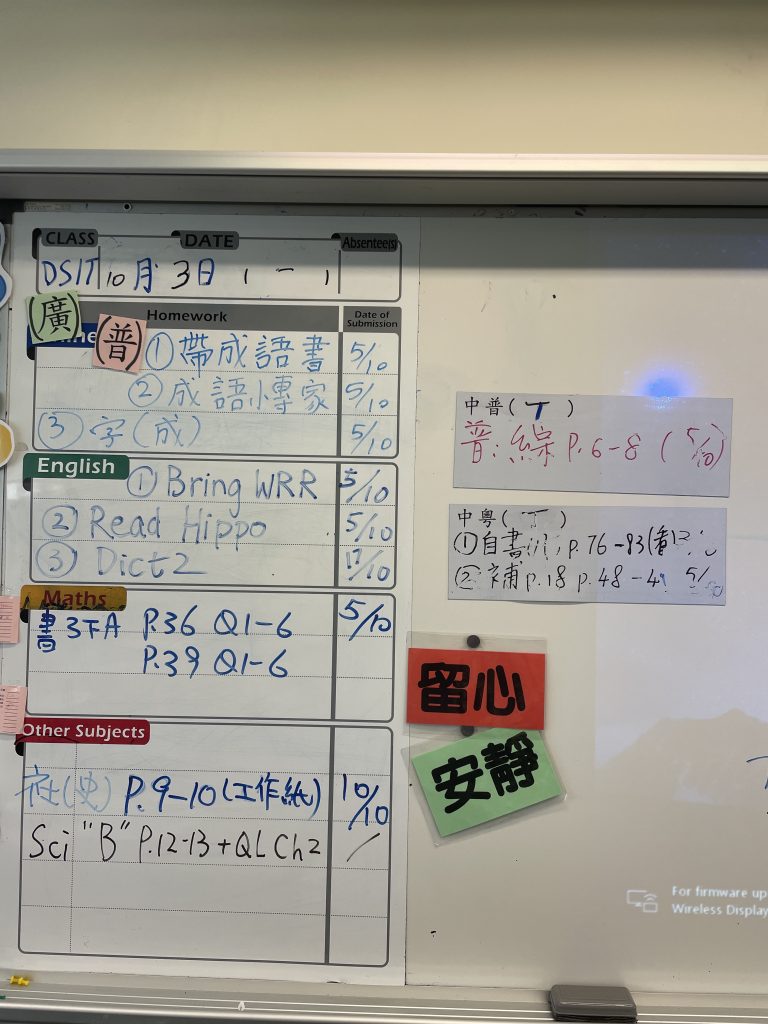 CLASS DATE Absentee(s)
DSIT 10月3日 ( 一 )
Homework Date of Submission
(廣)
(普) ①帶成語書 5/10
②成語小專家 5/10
③字(成) 5/10
English ①Bring WRR 5/10
②Read Hippo 5/10
③Dict2 17/10
Maths
書3下A P.36 Q1-6 5/10
P.39 Q1-6
Other Subjects
社(史) P.9-10(工作紙) 10/10
Sci "B" P.12-13+QL Ch2 /
中普( T )
普:綜 P.6-8 ( 5/10)
中粵( T )
①自書 p.76-83
②補 p.18 p.48-4 5/
留心
安靜
For firmware up
Wireless Display